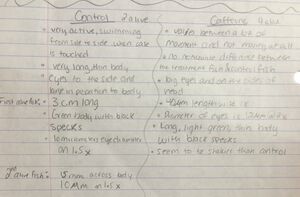 Control 2 alive
• very active, swimming
from side to side when case
is touched
• very long, thin body
• eyes to the side and
line in proportion to body
First alive fish: • 3 cm long
• Green body with black
specks
• 10 micrometers eye diameter
on 1.5x
2nd alive fish: 15 mm across body
10 Mm on 1.5x
Caffeine 4 alive
• varies between a lot of
movement and not moving at all
• no noticeable difference between
the treatment fish & control fish
• big eyes and on the sides of
head
• length
• Diameter of eyes is
• Long, light green, thin body
with black specks
• seem to be shakier than control